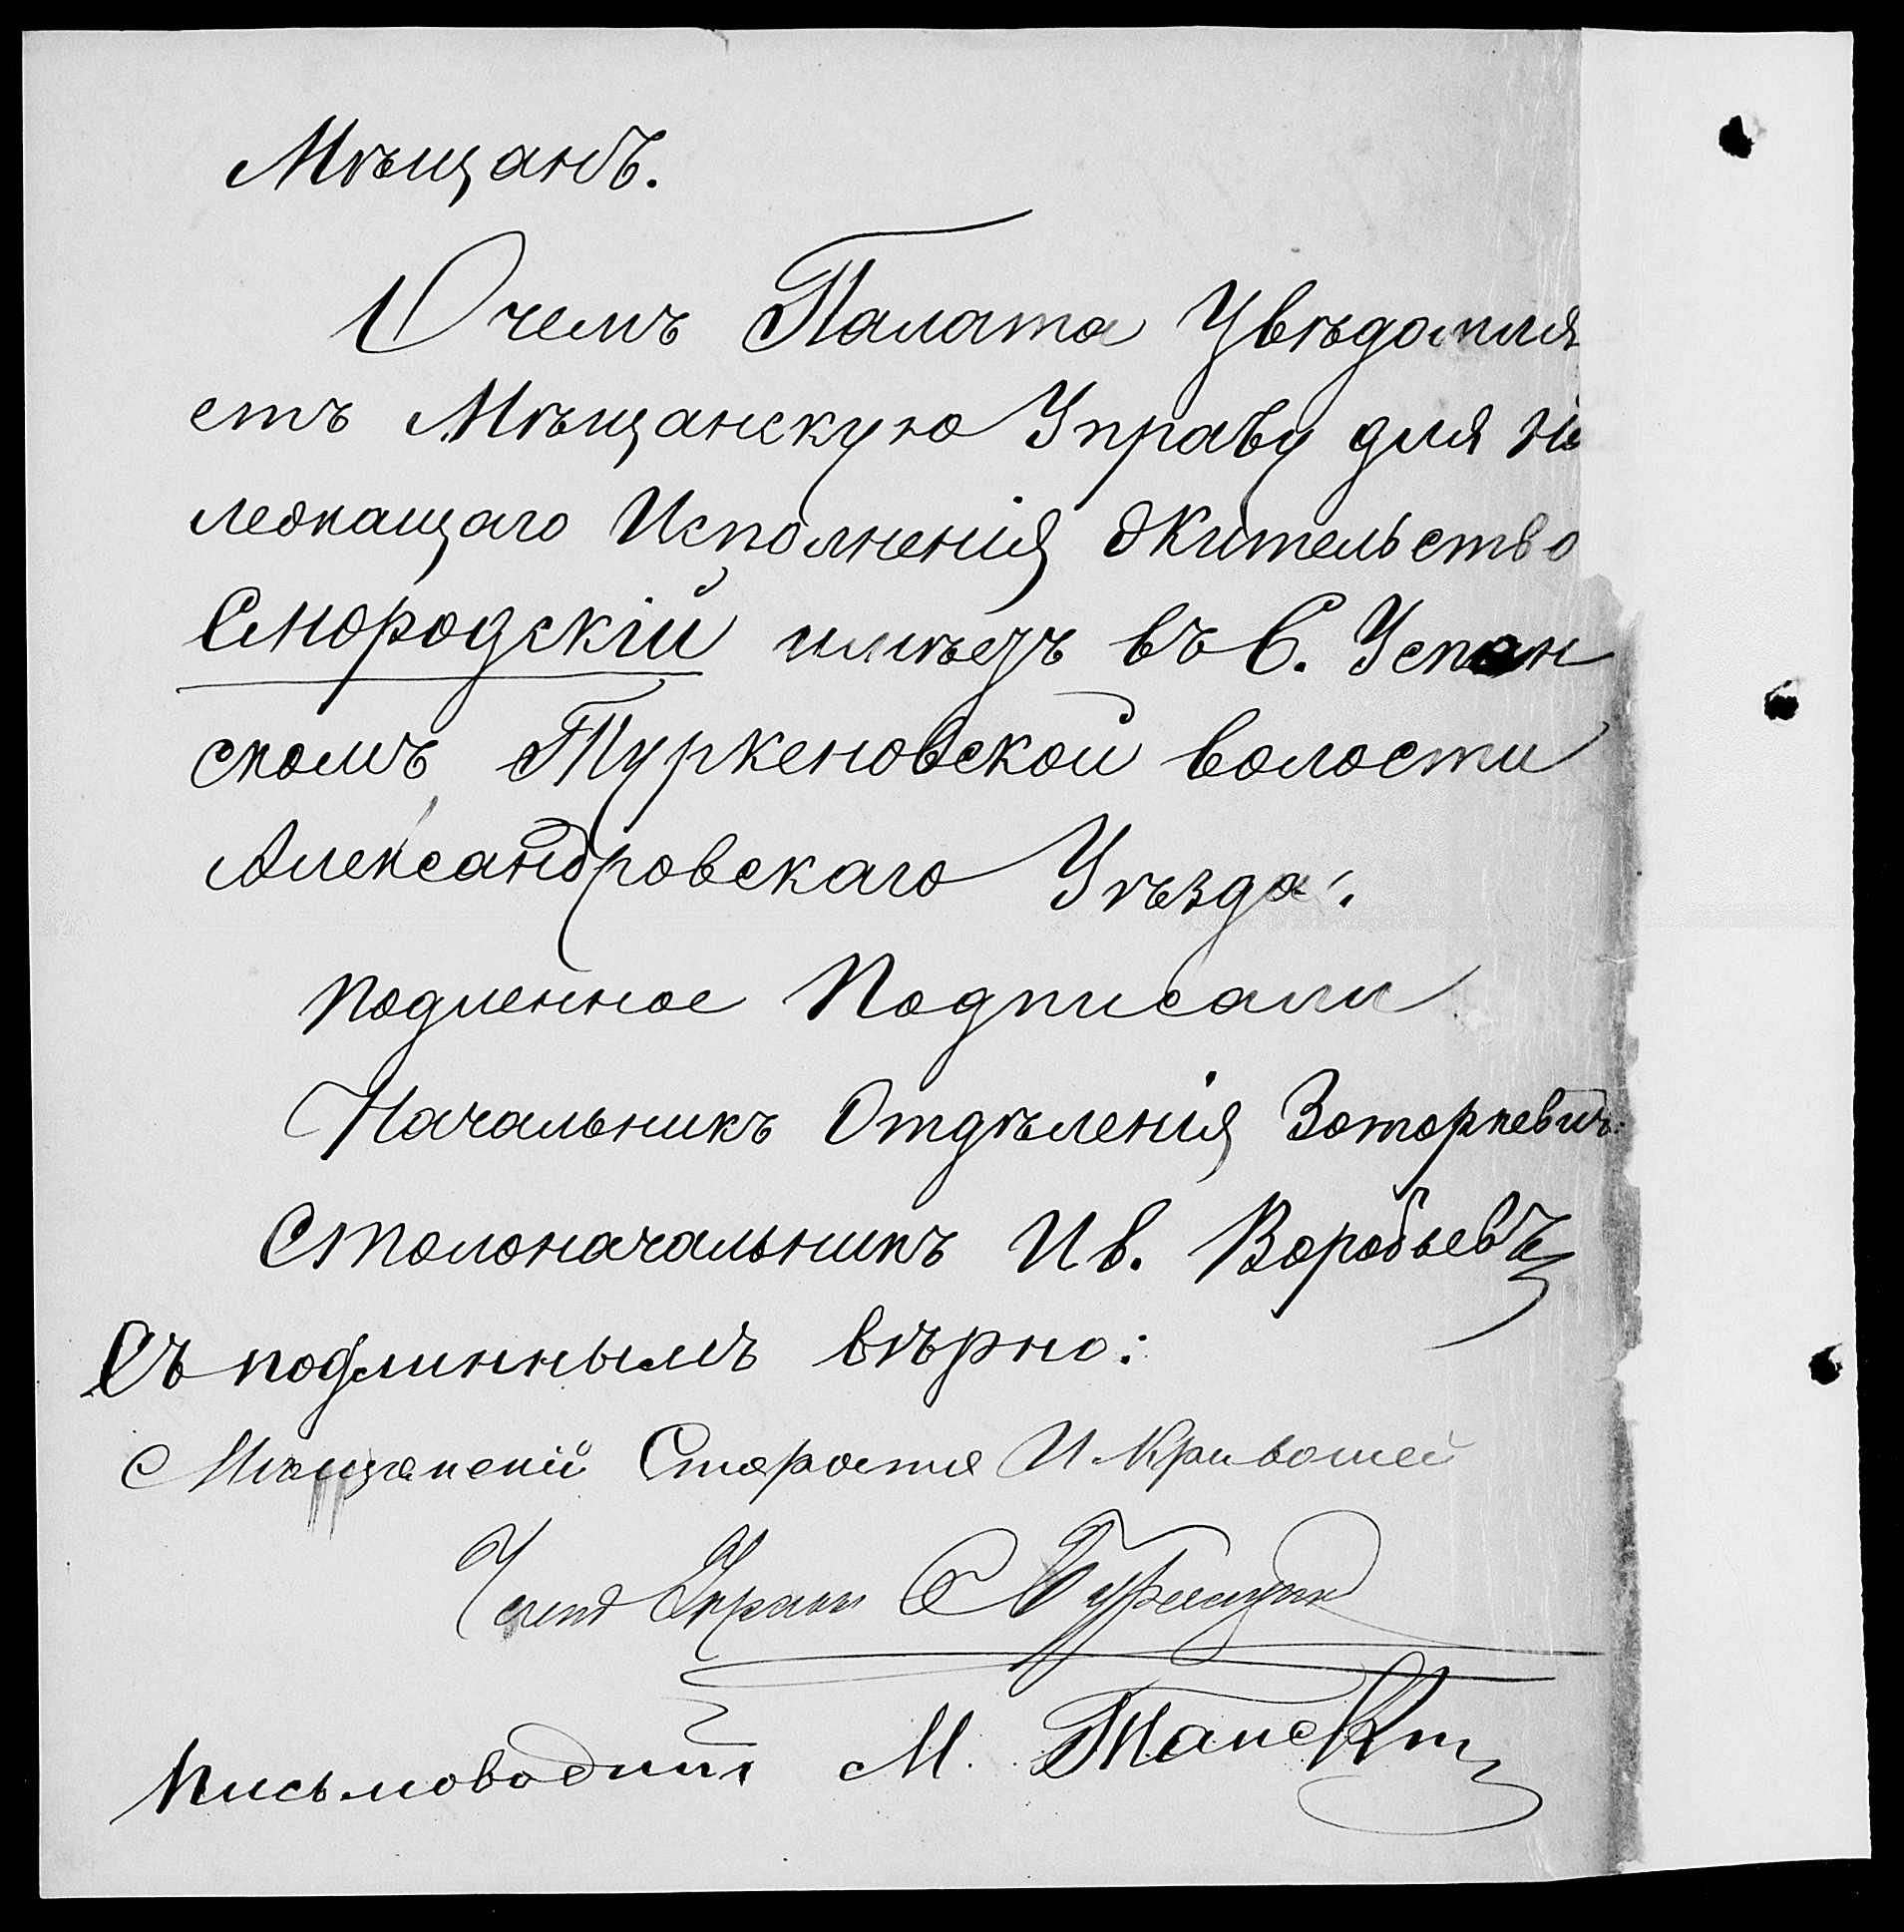 Мѣщанъ.
О чемъ Палата Увѣдомля
етъ Мѣщанскую Управу для на
лежащаго Исполненія Жительство
Снородскій имѣетъ въ С. Успен
скомъ Туркеновской волости
Александровскаго Уѣзда.
Подленное Подписали
Начальникъ Отдѣленія
Столоначальникъ Ив. Воробьевъ
Съ подлиннымъ вѣрно:
Мѣщанскій Староста И. Кривошей
Членъ Управы С
Письмоводит М.